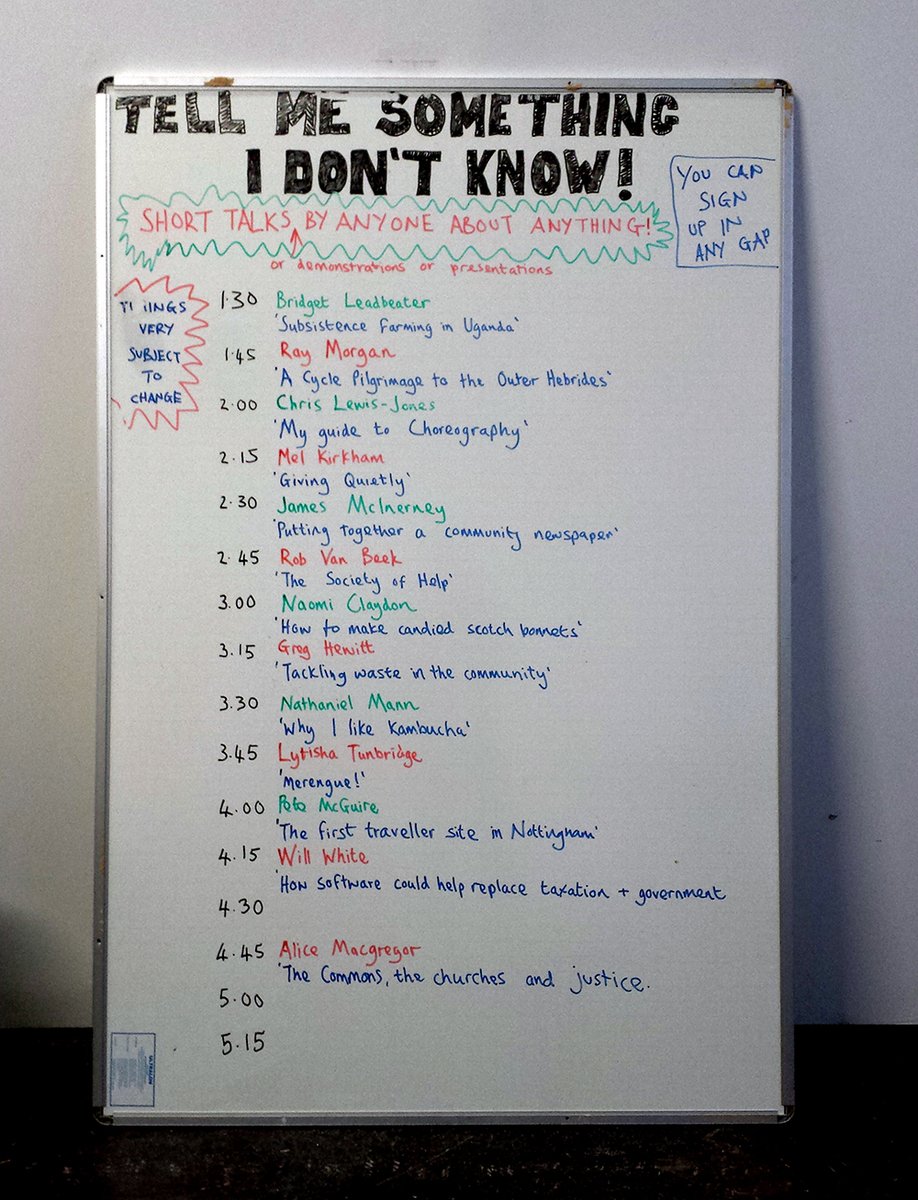 TELL ME SOMETHING
I DON'T KNOW!
YOU CAN
SIGN
UP IN
ANY GAP
SHORT TALKS BY ANYONE ABOUT ANYTHING!
or demonstrations or presentations
THINGS
VERY
SUBJECT
TO
CHANGE
1.30 Bridget Leadbeater
'Subsistence Farming in Uganda'
1.45 Ray Morgan
'A Cycle Pilgrimage to the Outer Hebrides'
2.00 Chris Lewis-Jones
'My guide to Choreography'
2.15 Mel Kirkham
'Giving Quietly'
2.30 James McInerney
'Putting together a community newspaper'
2.45 Rob Van Beek
'The Society of Help'
3.00 Naomi Claydon
'How to make candied scotch bonnets'
3.15 Greg Hewitt
'Tackling waste in the community'
3.30 Nathaniel Mann
'Why I like Kambucha'
3.45 Lytisha Tunbridge
'Merengue!'
4.00 Pete McGuire
'The first traveller site in Nottingham'
4.15 Will White
'How software could help replace taxation + government
4.30
4.45 Alice Macgregor
'The Commons, the churches and justice.
5.00
5.15